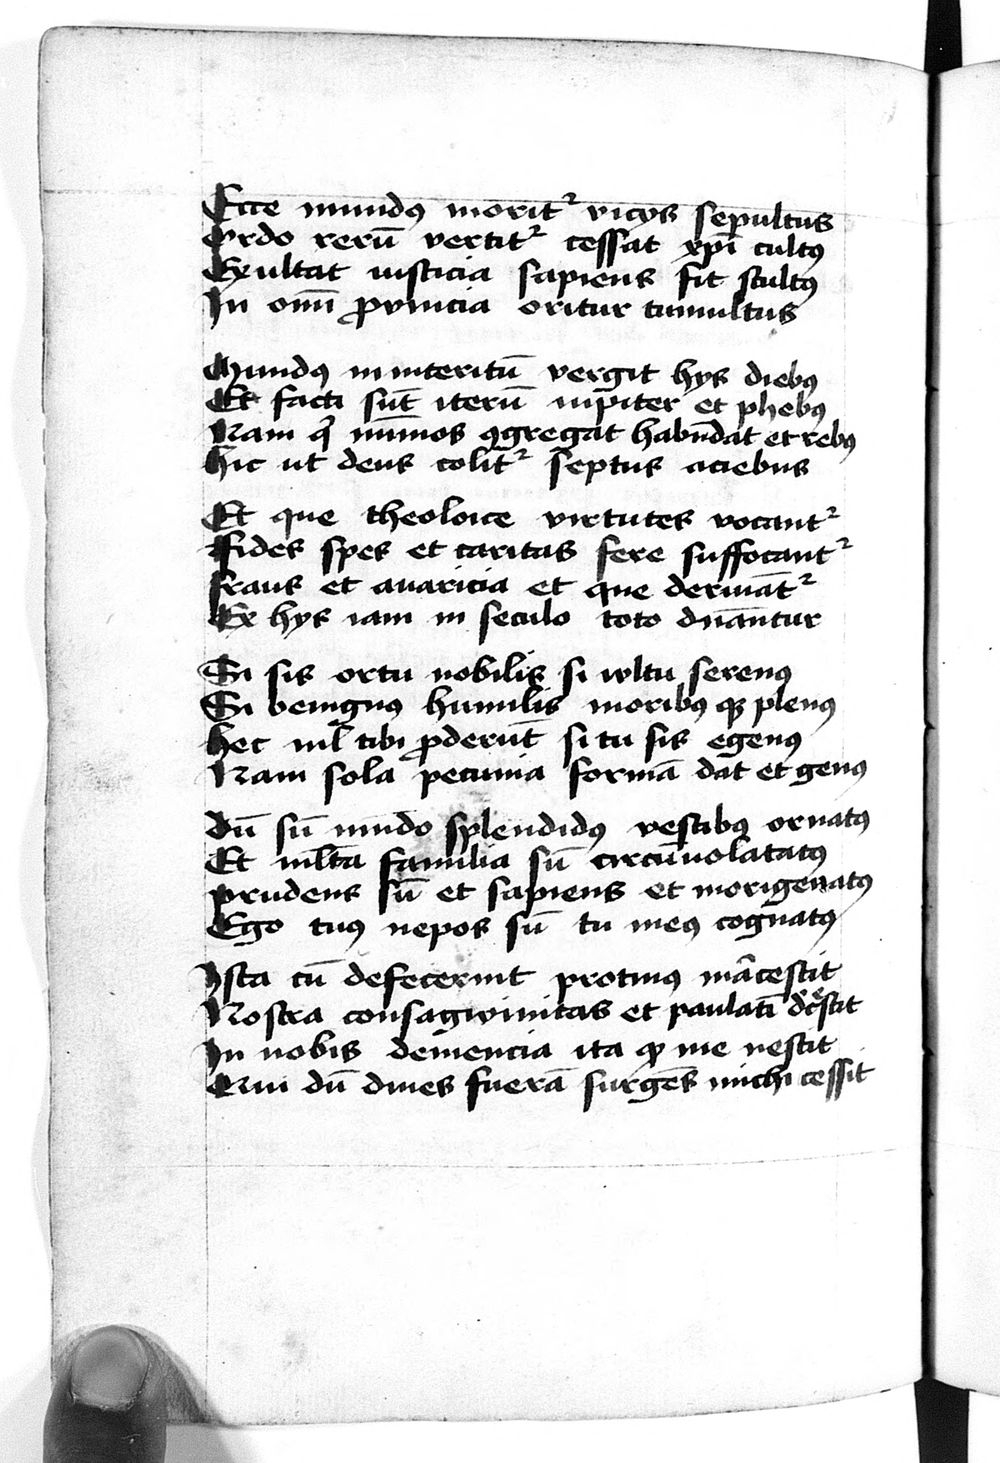 Ecce mundꝰ moritᷣ vicijs sepultus
Ordo rerū vertitᷣ cessat xp̄i cultꝰ
Exultat iusticia sapiens fit stultꝰ
In om̄i ꝓvincia oritur tumultus
Mundꝰ in interitū vergit hys diebꝰ
Et facti sūt iterū iupiter et phebꝰ
Nam qͥ nūmos ꝯgregat habūdat et rebꝰ
Hic ut deus colitᷣ septus aciebus
Et que theoloice virtutes vocantᷣ
Fides spes et caritas fere suffocantᷣ
Fraus et auaricia et que deriuātᷣ
Ex hys iam in seculo toto dn̄antur
Si sis ortu nobilis si wltu serenꝰ
Si benignꝰ humilis moribꝰ qꝫ plenꝰ
Hec nil tibi ꝓderūt si tu sis egenꝰ
Nam sola pecunia formā dat et genꝰ
Dū sū mūdo splendidꝰ vestibꝰ ornatꝰ
Et ml̄ta familia sū circūuolatatꝰ
Prudens sū et sapiens et morigenatꝰ
Ego tuꝰ nepos sū tu meꝰ cognatꝰ
Ista cū defecerint protinꝰ māescit
Nostra consagwinitas et paulatī dc̓scit
In nobis demencia ita ꝙ me nescit
Qui dū diues fuerā surgēs michi cessit